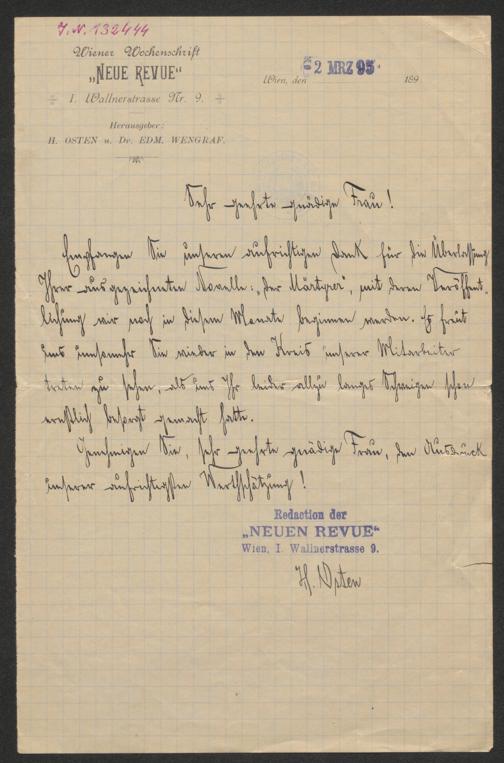 J. N. 132444
Wiener Wochenschrift
„NEUE REVUE“
I. Wallnerstrasse Nr. 9.
Herausgeber:
H. OSTEN u. Dr. EDM. WENGRAF.
Wien, den 2 MRZ 95 189
Sehr geehrte gnädige Frau!
Empfangen Sie unseren aufrichtigen Dank für die Überlassung
Ihrer ausgezeichneten Novelle: „Der Märtyrer“, mit deren Veröffent-
lichung wir noch in diesem Monate beginnen werden. Es freut
uns umsomehr Sie wieder in den Kreis unserer Mitarbeiter
treten zu sehen, als uns Ihr leider allzu langes Schweigen schon
ernstlich besorgt gemacht hatte.
Genehmigen Sie, sehr geehrte gnädige Frau, den Ausdruck
unserer aufrichtigsten Werthschätzung!
Redaction der
„NEUEN REVUE“
Wien, I. Wallnerstrasse 9.
H. Osten